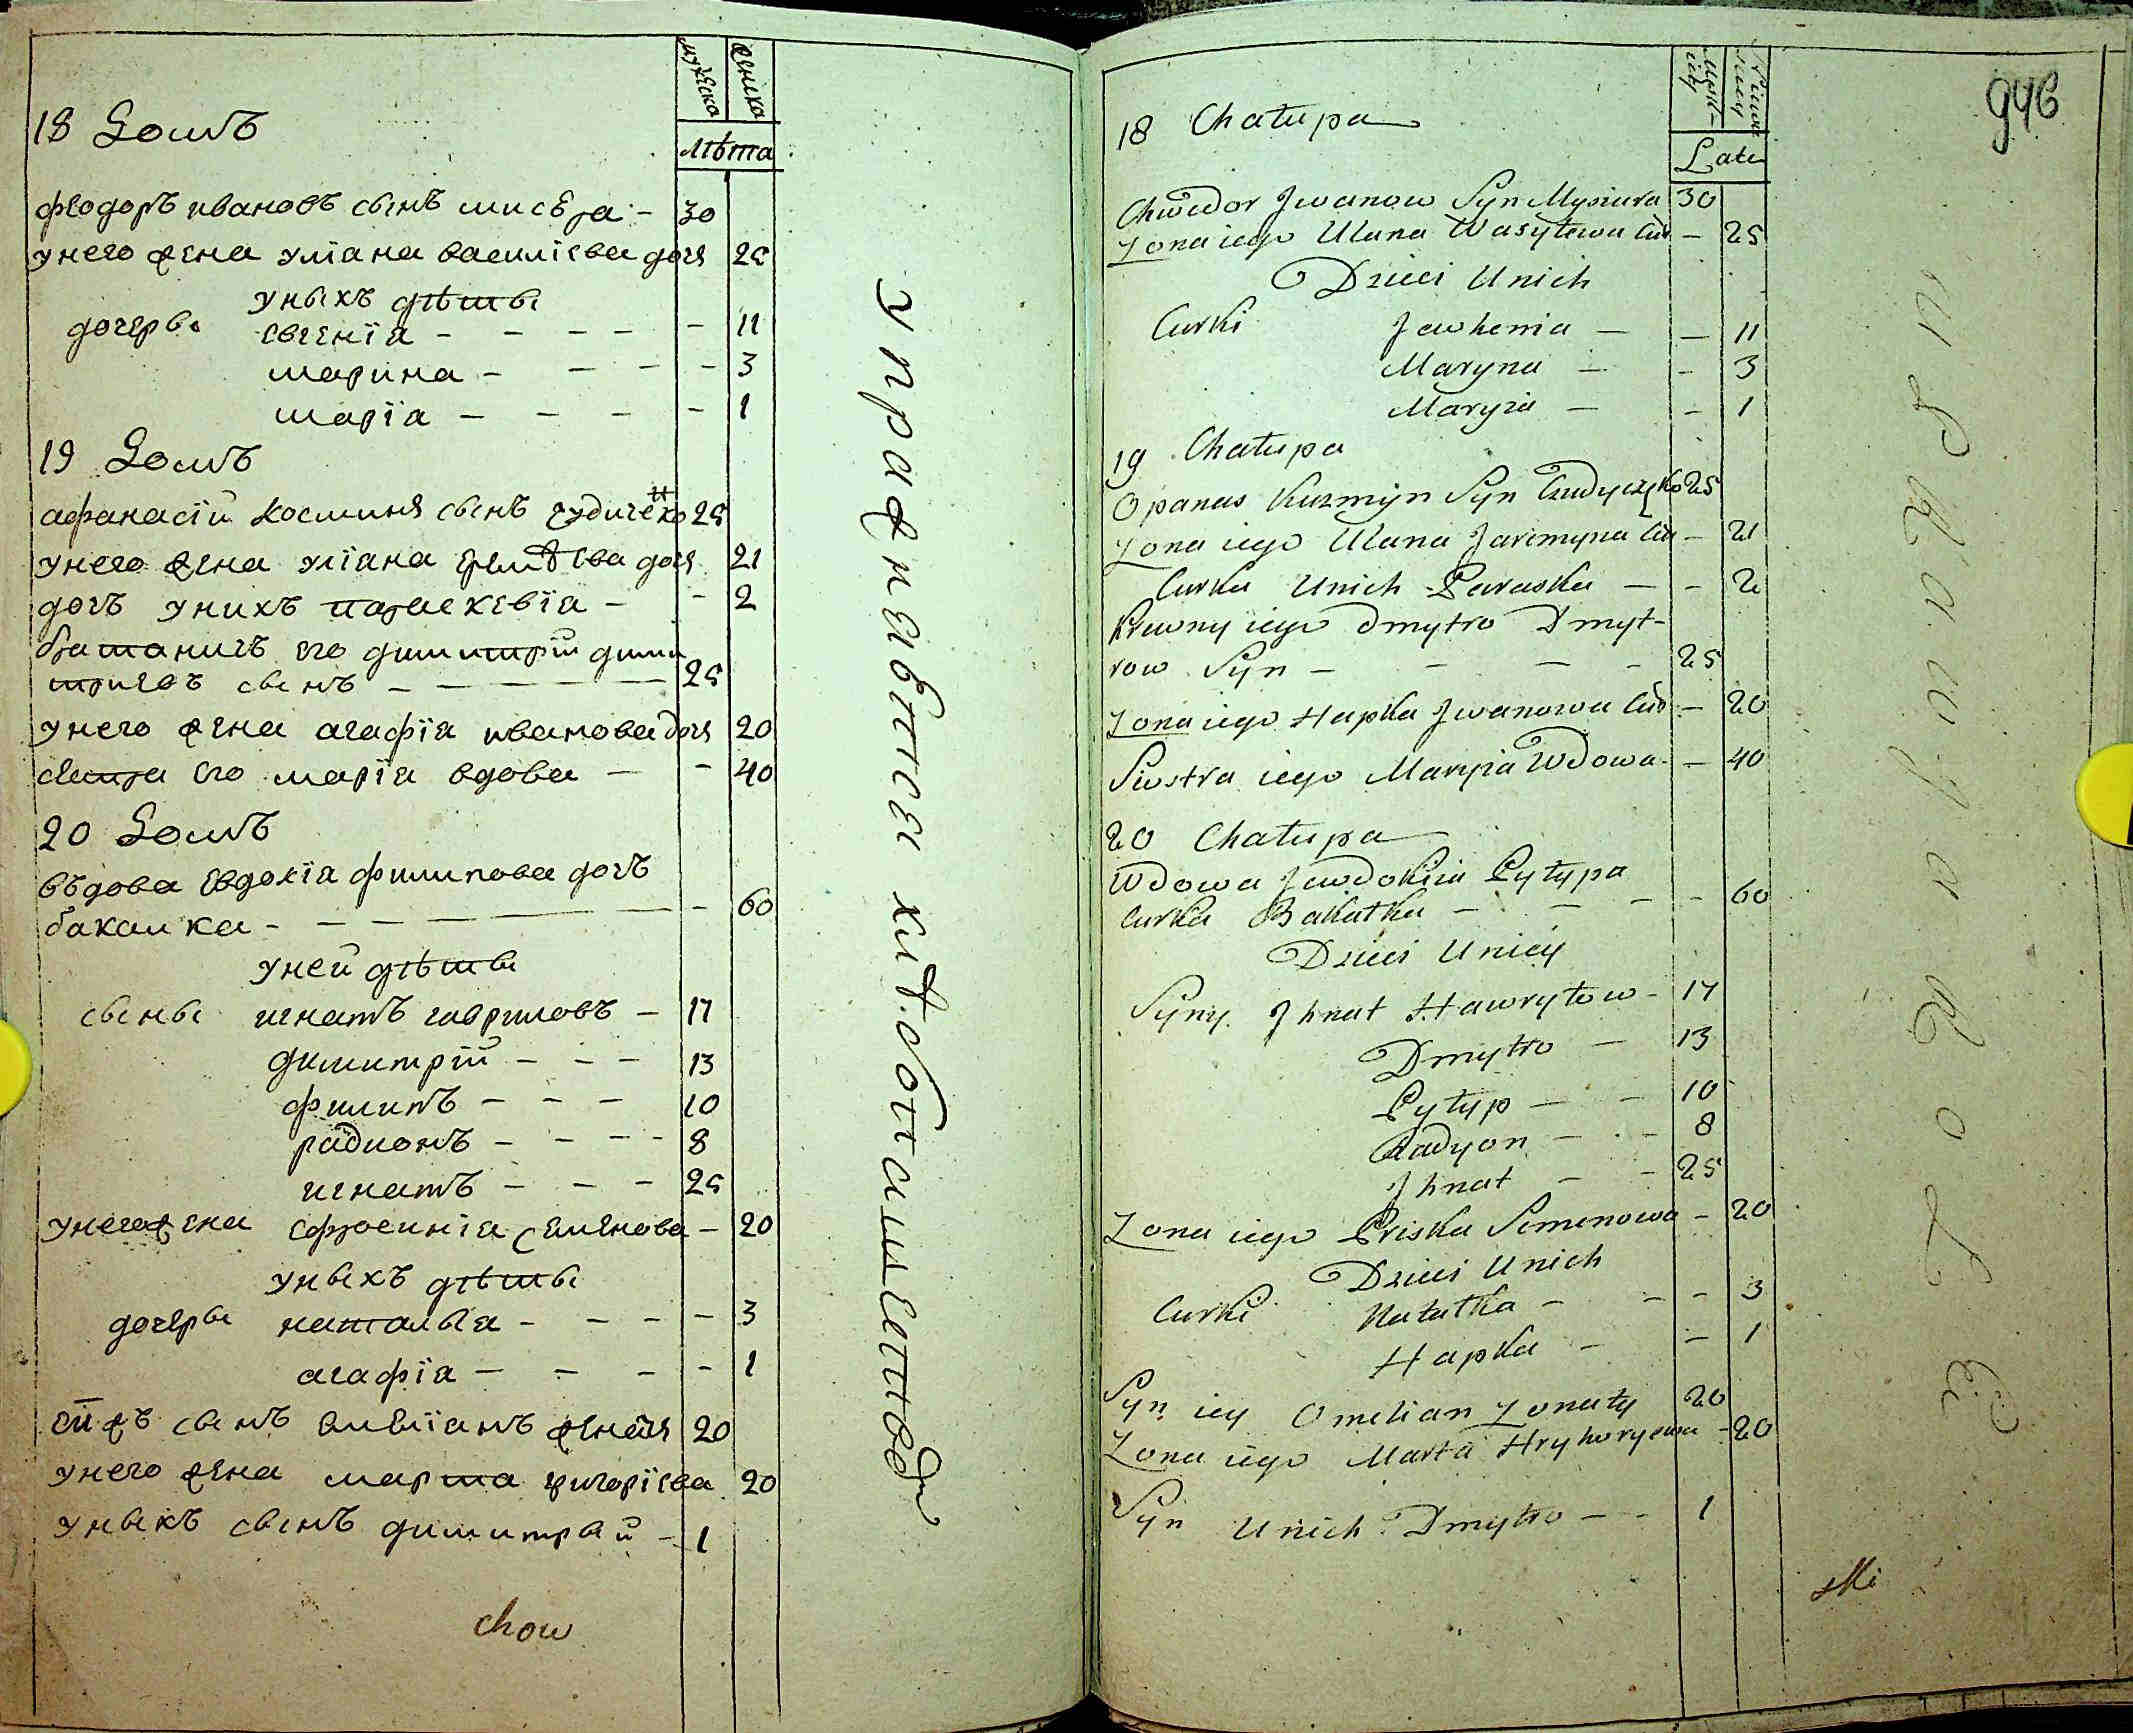 мужеска
женска
лѣта
18 Домъ
феодоръ ивановъ сынъ мисѣра - 30
у него жена уліана василіева дочь 25
у ныхъ дѣты
дочеры евгенія - - - - - 11
марина - - - - 3
марія - - - - 1
19 Домъ
афанасій косминъ сынъ 25
у него жена уліана дочь 21
дочъ у нихъ параскевіа - - 2
братаничъ его димитрій дими
тріевъ сынъ - - - - 25
у него жена агафіа иванова дочь 20
сестра его маріа вдова - - 40
20 Домъ
въдова евдокіа филипова дочъ
бакалка - - - - - 60
у ней дѣты
сыны игнатъ гавриловъ - 17
димитрій - - - 13
филипъ - - - 10
радионъ - - - - 8
игнатъ - - - 25
у него жена ефросиніа семенова - 20
у ныхъ дѣты
дочеры наталыа - - - - 3
агафіа - - - - 1
сынъ емеліанъ 20
у него жена марта григоріева 20
у ныхъ сынъ димитрый - 1
chow
упражнявтся хлѣбопашествомъ
946
Męzka
Lata
18 Chałupa
Chwedor Jwanow Syn Mysiura 30
Żona iego Ulana Wasylewa Cur - 25
Dzieci Unich
Curki Jewhenia - - 11
Maryna - - 3
Maryia - - 1
19 Chałupa
Opanas Kuzmyn Syn 25
Żona iego Ulana Jaremyna Cur - 21
Curka Unich Paraska - - 2
Krewny iego Dmytro Dmyt-
row Syn - - - - 25
Żona iego Hapka Jwanowa Cur - 20
Siostra iego Maryia Wdowa - - 40
20 Chałupa
Wdowa Jewdokiia Pyłypa
Curka Bakałka - - - - 60
Dzieci Uniey
Syny Jhnat Hawryłow - 17
Dmytro - 13
Pyłyp - - 10
Radyon - - 8
Jhnat - - 25
Żona iego Priska Semenowa - 20
Dzieci Unich
Curki Natałka - - - 3
Hapka - - 1
Syn iey Omelian Żonaty 20
Żona iego Marta Hryhoryewa - 20
Syn Unich Dmytro - - 1
Mi